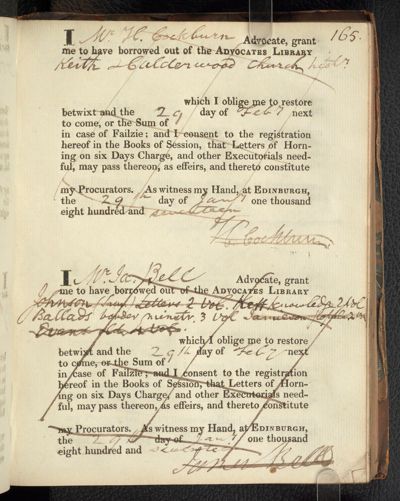 165.
I Mr H. Cockburn Advocate, grant
me to have borrowed out of the ADVOCATES LIBRARY
Keith & Calderwood Church
which I oblige me to restore
betwixt and the 29 day of Feby next
to come, or the Sum of
in case of Failzie; and I consent to the registration
hereof in the Books of Session, that Letters of Horn-
ing on six Days Charge, and other Executorials need-
ful, may pass thereon, as effeirs, and thereto constitute
my Procurators. As witness my Hand, at EDINBURGH,
the 29th day of Jany one thousand
eight hundred and seventeen
H Cockburn
I Mr Ja. Bell Advocate, grant
me to have borrowed out of the ADVOCATES LIBRARY
Johnson Letters 2 Vol. Knowledge 2 Vol
Ballads border minstr. 3 Vol
which I oblige me to restore
betwixt and the 29th day of Feby next
to come, or the Sum of
in case of Failzie; and I consent to the registration
hereof in the Books of Session, that Letters of Horn-
ing on six Days Charge, and other Executorials need-
ful, may pass thereon, as effeirs, and thereto constitute
my Procurators. As witness my Hand, at EDINBURGH,
the 29th day of Jany one thousand
eight hundred and seventeen
James Bell